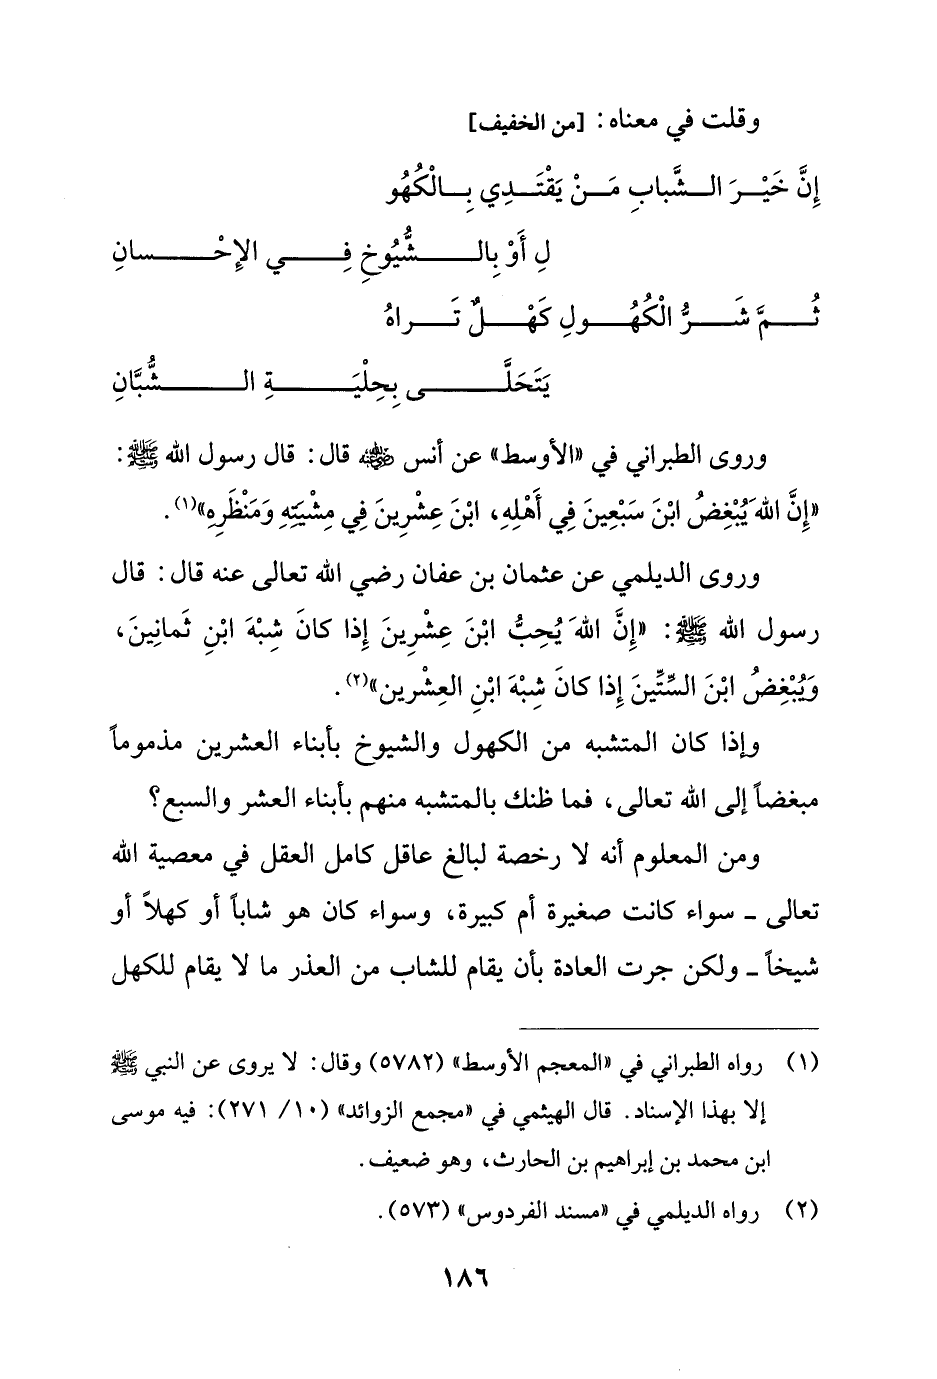 وقلت في معناه: [من الخفيف]
إِنَّ خَيْرَ الشَّبابِ مَنْ يَقْتَدِي بِالْكُهُو
لِ أَوْ بِالشُّيُوخِ فِي الإِحْسانِ
ثُمَّ شَرُّ الْكُهُولِ كَهْلٌ تَراهُ
يَتَحَلَّى بِحِلْيَةِ الشُّبَّانِ
وروى الطبراني في «الأوسط» عن أنس رضي الله عنه قال: قال رسول الله ﷺ:
«إِنَّ اللهَ يُبْغِضُ ابْنَ سَبْعِينَ فِي أَهْلِهِ، ابْنَ عِشْرِينَ فِي مِشْيَتِهِ وَمَنْظَرِهِ»(١).
وروى الديلمي عن عثمان بن عفان رضي الله تعالى عنه قال: قال
رسول الله ﷺ: «إِنَّ اللهَ يُحِبُّ ابْنَ عِشْرِينَ إِذا كانَ شِبْهَ ابْنِ ثَمانِينَ،
وَيُبْغِضُ ابْنَ السِّتِّينَ إِذا كانَ شِبْهَ ابْنِ العِشْرين»(٢).
وإذا كان المتشبه من الكهول والشيوخ بأبناء العشرين مذموماً
مبغضاً إلى الله تعالى، فما ظنك بالمتشبه منهم بأبناء العشر والسبع؟
ومن المعلوم أنه لا رخصة لبالغ عاقل كامل العقل في معصية الله
تعالى ـ سواء كانت صغيرة أم كبيرة، وسواء كان هو شاباً أو كهلاً أو
شيخاً ـ ولكن جرت العادة بأن يقام للشاب من العذر ما لا يقام للكهل
(١) رواه الطبراني في «المعجم الأوسط» (٥٧٨٢) وقال: لا يروى عن النبي ﷺ
إلا بهذا الإسناد. قال الهيثمي في «مجمع الزوائد» (١٠/ ٢٧١): فيه موسى
ابن محمد بن إبراهيم بن الحارث، وهو ضعيف.
(٢) رواه الديلمي في «مسند الفردوس» (٥٧٣).
١٨٦